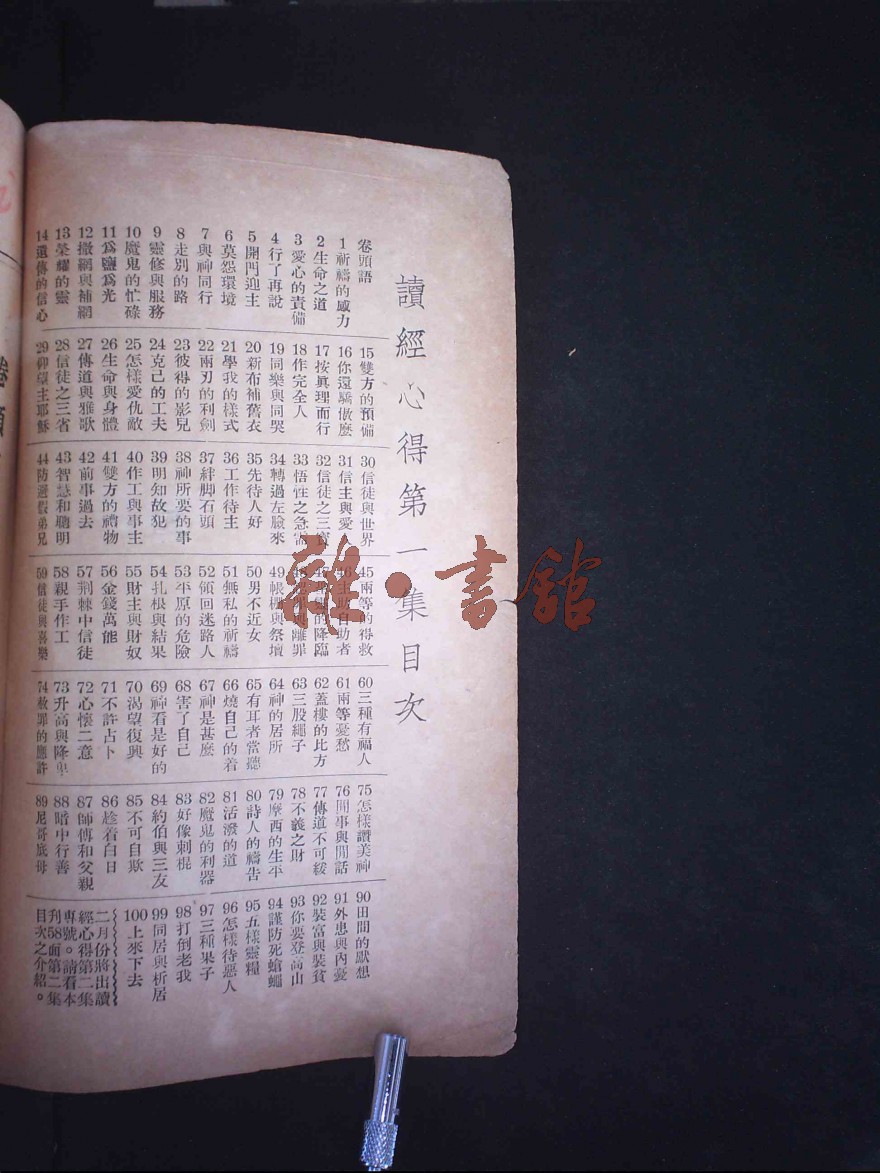 讀經心得第一集目次
卷頭語
1祈禱的威力
2生命之道
3愛心的責備
4行了再說
5開門迎主
6莫怨環境
7與神同行
8走別的路
9靈修與服務
10魔鬼的忙碌
11爲鹽爲光
12撒網與補網
13榮耀的靈
14遺傳的信心
15雙方的預備
16你還驕傲麼
17按眞理而行
18作完全人
19同樂與同哭
20新布補舊衣
21學我的樣式
22兩刃的利劍
23彼得的影兒
24克己的工夫
25怎樣愛仇敵
26生命與身體
27傳道與雅歌
28信徒之三省
29仰望主耶穌
30信徒與世界
31信主與愛
32信徒之三寶
33悟性之急需
34轉過左臉來
35先待人好
36工作待主
37絆脚石頭
38神所要的事
39明知故犯
40作工與事主
41雙方的禮物
42前事過去
43智慧和聰明
44防避假弟兄
45兩等的得救
46主助自助者
47的降臨
48與離罪
49帳棚與祭壇
50男不近女
51無私的祈禱
52領回迷路人
53平原的危險
54扎根與結果
55財主與財奴
56金錢萬能
57荆棘中信徒
58親手作工
59信徒與喜樂
60三種有福人
61兩等憂愁
62蓋樓的比方
63三股繩子
64神的居所
65有耳者當聽
66燒自己的着
67神是甚麼
68害了自己
69神看是好的
70渴望復興
71不許占卜
72心懷二意
73升高與降卑
74赦罪的應許
75怎樣讚美神
76閒事與閒話
77傳道不可緩
78不義之財
79摩西的生平
80詩人的禱告
81活潑的道
82魔鬼的利器
83好像刺棍
84約伯與三友
85不可自欺
86趁着白日
87師傅和父親
88暗中行善
89尼哥底母
90田間的默想
91外患與內憂
92裝富與裝貧
93你要登高山
94謹防死蒼蠅
95五樣靈糧
96怎樣待惡人
97三種果子
98打倒老我
99同居與析居
100上來下去
二月份將出讀
經心得第二集
專號。請看本
刊58面第二集
目次之介紹。
雜·書館